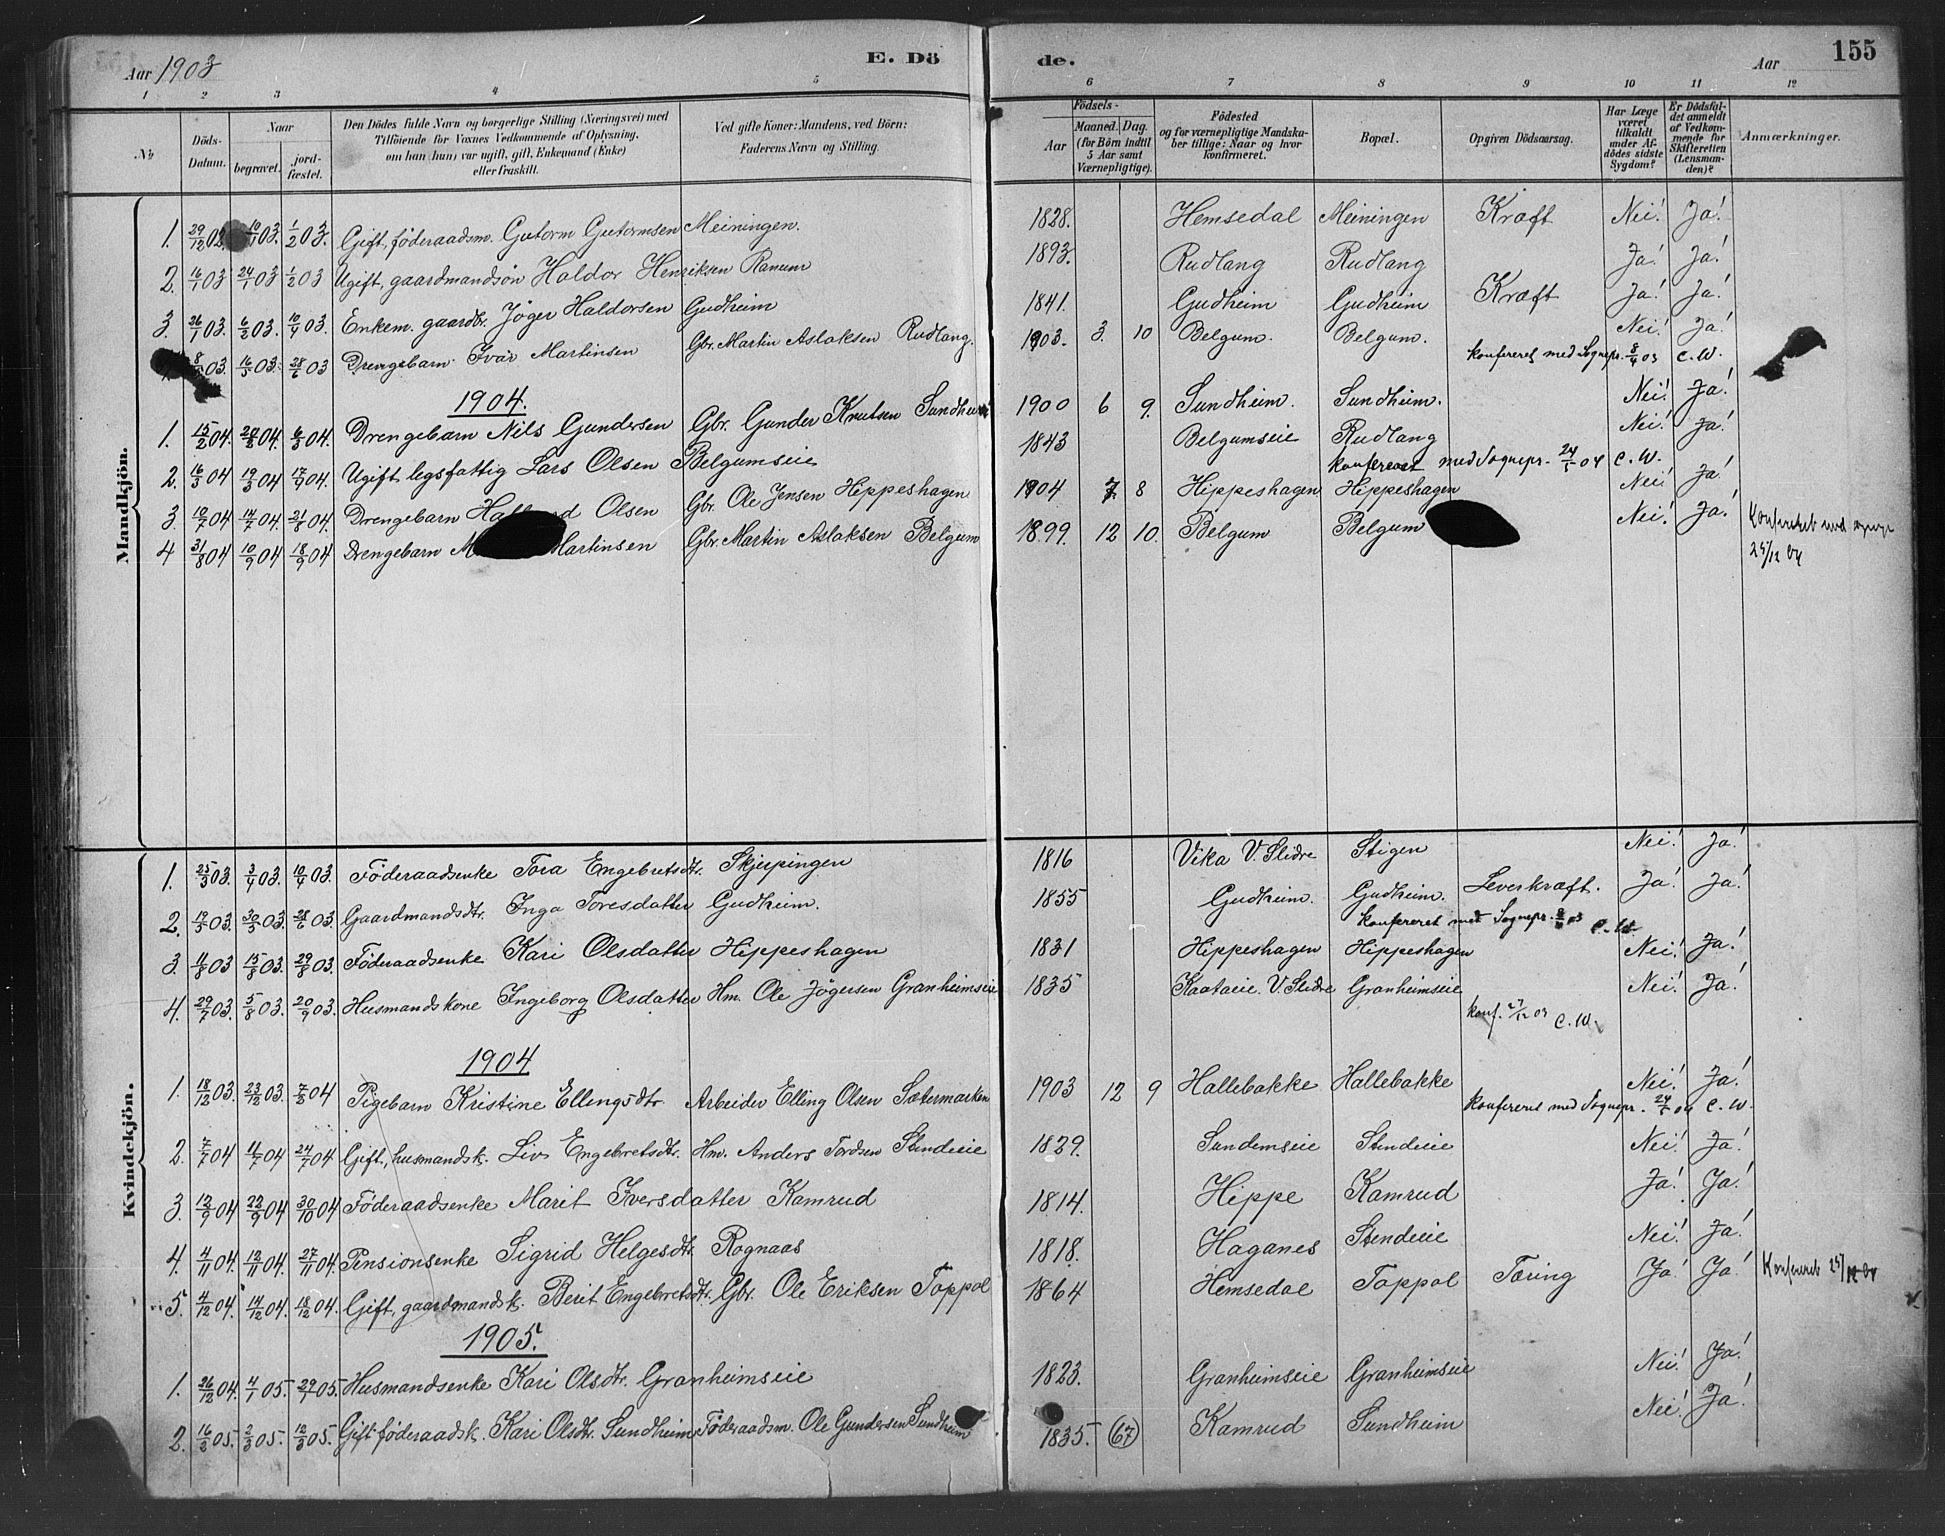 Aar 1903
E. Döde.
Aar
155
1 2 3 4 5 6 7 8 9 10 11 12
№
Döds-Datum.
Naar begravet. jordfæstet.
Den Dödes fulde Navn og borgerlige Stilling (Næringsvei) med Tilföiende for Voxnes Vedkommende af Oplysning, om han (hun) var ugift, gift, Enkemand (Enke) eller fraskilt.
Ved gifte Koner: Mandens, ved Börn: Faderens Navn og Stilling.
Födsels-
Aar
Maaned. Dag. (for Börn indtil 5 Aar samt Værnepligtige).
Födested og for værnepligtige Mandskaber tillige: Naar og hvor konfirmeret.
Bopæl.
Opgiven Dödsaarsag.
Har Læge været tilkaldt under Afdödes sidste Sygdom?
Er Dödsfaldet anmeldt af Vedkommende for Skifteretten (Lensmanden)?
Anmærkninger.
Mandkjön.
1. 29/12 02 10/1 03. 1/2 03. Gift, föderaadsm. Gutorm Gutormsen Meiningen. 1828. Hemsedal Meiningen Kræft Nei! Ja!
2. 16/1 03 24/1 03 1/2 03 Ugift, gaardmandsön Haldor Henriksen Ranum 1893. Rudlang Rudlang Ja! Ja!
3. 26/1 03. 6/2 03. 10/4 03. Enkem. gaardbr. Jöger Haldorsen Gudheim 1841. Gudheim Gudheim Kræft Ja! Ja!
03. 16/5 03. 28/6 03 Drengebarn Ivar Martinsen Gbr. Martin Aslaksen Rudlang. 1903. 3. 10 Belgum. Belgum. Nei! Ja!
konfereret med Sognepr. 8/4 03 C. W.
1904.
1. 15/2 04. 04. 6/3 04. Drengebarn Nils Gundersen Gbr. Gunder Knutsen Sundheim 1900 6 9. Sundheim. Sundheim. Nei! Ja!
2. 16/3 04 19/3 04 17/4 04. Ugift legsfattig Lars Olsen Belgumseie 1843 Belgumseie Rudlang Nei! Ja!
konfereret med Sognepr. 24/5 04 C. W.
3. 10/7 04 14/7 04. 21/8 04. Drengebarn Olsen Gbr. Ole Jensen Hippeshagen 1904 7 8 Hippeshagen Hippeshagen Nei! Ja!
4 31/8 04 10/9 04 18/9 04 Drengebarn Martinsen Gbr. Martin Aslaksen Belgum 1899. 12 10. Belgum Belgum Nei! Ja! Konfereret med
Kvindekjön.
1. 25/3 03. 3/4 03. 10/4 03. Föderaadsenke Tora Engebretsdtr. Skjerpingen 1816 Vika V. Slidre Stigen Nei! Ja!
2. 19/5 03. 30/5 03. 28/6 03. Gaardmandsdtr. Inga Toresdatter Gudheim. 1855 Gudheim. Gudheim. Leverkræft. Ja! Ja!
konfereret med Sognepr. 03 C. W.
3. 11/8 03 15/8 03. 29/8 03. Föderaadsenke Kari Olsdatter Hippeshagen 1831 Hippeshagen Hippeshagen Nei! Ja!
4. 29/7 03. 5/8 03. 20/9 03. Husmandskone Ingeborg Olsdatter Hm. Ole Jögersen Granheimseie 1835 Kaataeie V. Slidre Granheimseie Nei! Ja!
konf. 27/12 03 C. W.
1904
1. 18/12 03. 23/12 03. 7/2 04 Pigebarn Kristine Ellingsdtr. Arbeider Elling Olsen Sætermarken 1903 12 9 Hallebakke Hallebakke Nei! Ja!
konfereret med Sognepr. 24/5 04 C. W.
2. 7/7 04 11/7 04 24/7 04 Gift, husmandsk. Liv Engebretsdtr. Hm. Anders Tordsen Stendeie 1829. Sundemseie Stendeie Nei! Ja!
3. 13/9 04 22/9 04 30/10 04 Föderaadsenke Marit Iversdatter Kamrud 1814. Hippe Kamrud Ja! Ja!
4. 4/11 04. 12/11 04. 27/11 04. Pensionsenke Sigrid Helgesdtr. Rognaas 1818. Haganes Stendeie Nei! Ja!
5. 4/12 04. 14/12 04. 18/12 04. Gift, gaardmandsk. Berit Engebretsdtr. Gbr. Ole Eriksen Toppol 1864 Hemsedal Toppol Tæring Ja! Ja! Konfereret
1905.
1. 26/12 04. 4/1 05. 29/1 05. Husmandsenke Kari Olsdtr. Granheimseie 1823. Granheimseie Granheimseie Nei! Ja!
2. 16/2 05. 2/3 05. 12/3 05. Gift föderaadsk. Kari Olsdtr. Sundheim Föderaadsm. Ole Gundersen Sundheim 1835. (67) Kamrud Sundheim Nei! Ja!